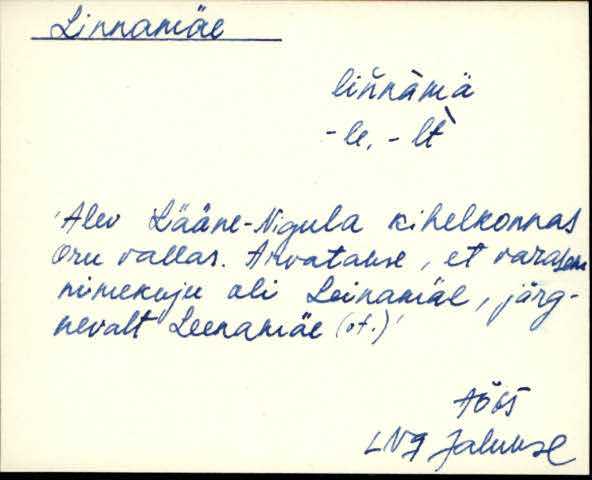 Linnamäe
liňnàmä
-le, -lt̀
'Alev Lääne-Nigula kihelkonnas
Oru vallas. Arvatakse, et varasem
nimekuju oli Leinamäe, järg-
nevalt Leenamäe (st.)'
LNg Jalukse